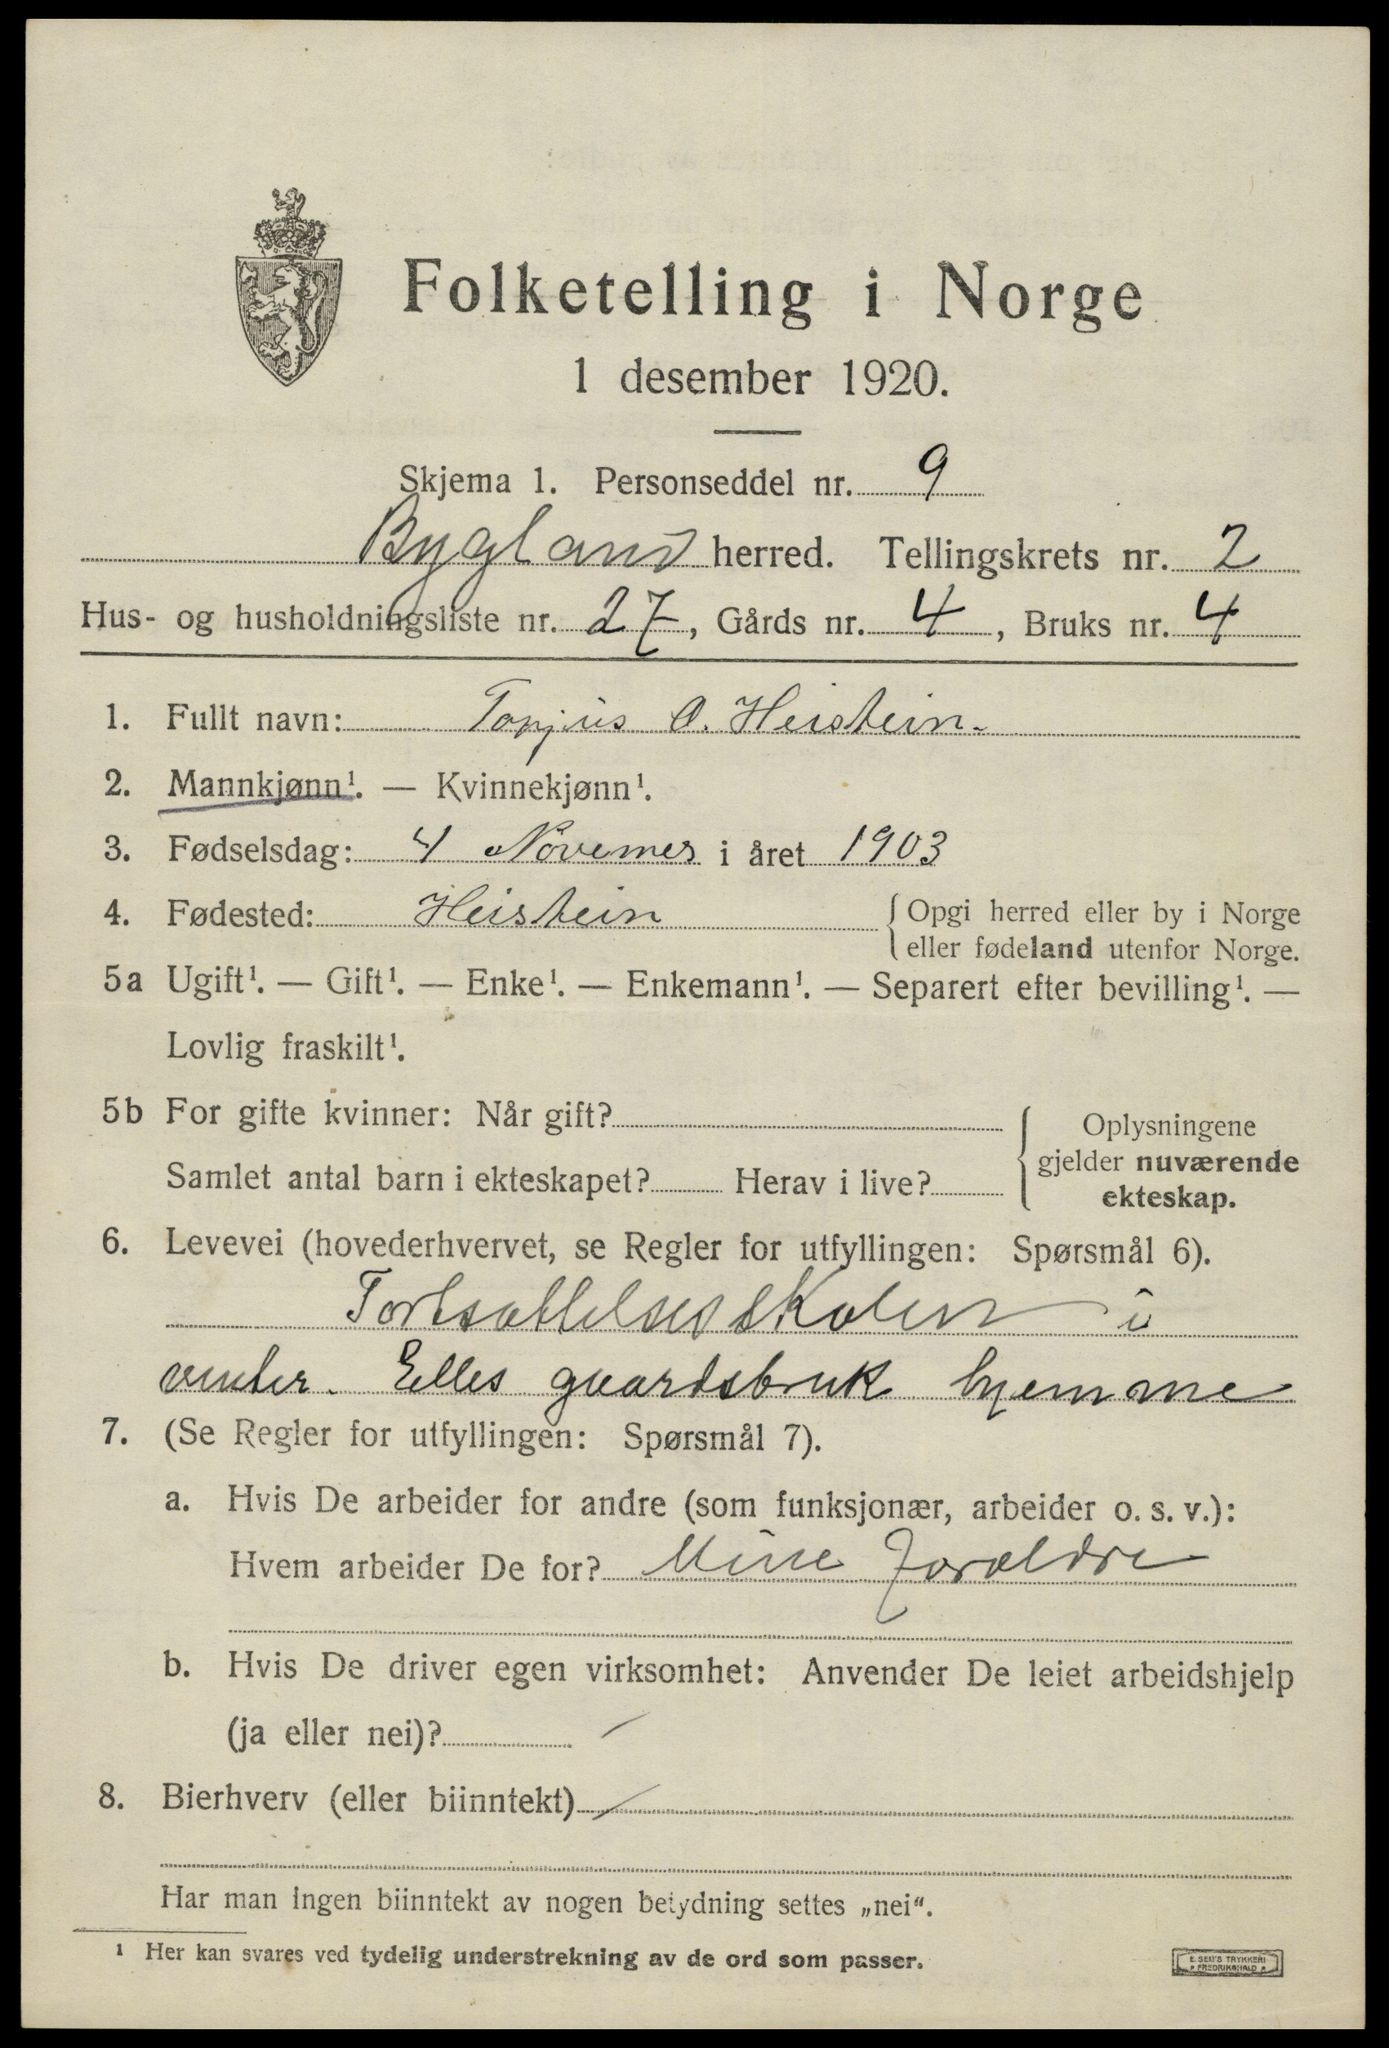 Folketelling i Norge
1 desember 1920.
Skjema 1. Personseddel nr. 9
Bygland herred. Tellingskrets nr. 2
Hus- og husholdningsliste nr. 27, Gårds nr. 4, Bruks nr. 4
1. Fullt navn: Torjus O. Heistein.
2. Mannkjønn¹. — Kvinnekjønn¹.
3. Fødselsdag: 4 Novemer i året 1903
4. Fødested: Heistein {Opgi herred eller by i Norge
eller fødeland utenfor Norge.
5a Ugift¹. — Gift¹. — Enke¹. — Enkemann¹. — Separert efter bevilling¹. —
Lovlig fraskilt¹.
5b For gifte kvinner: Når gift? { Oplysningene
gjelder nuværende
Samlet antal barn i ekteskapet? Herav i live?
ekteskap.
6. Levevei (hovederhvervet, se Regler for utfyllingen: Spørsmål 6).
Fortsættelsesskolen i
vinter. Elles gaardsbruk hjemme
7. (Se Regler for utfyllingen: Spørsmål 7).
a. Hvis De arbeider for andre (som funksjonær, arbeider o. s. v.):
Hvem arbeider De for? Mine forældre
b. Hvis De driver egen virksomhet: Anvender De leiet arbeidshjelp
(ja eller nei)? /
8. Bierhverv (eller biinntekt) /
Har man ingen biinntekt av nogen betydning settes „nei“.
¹ Her kan svares ved tydelig understrekning av de ord som passer.
E. SEM'S TRYKKERI
FREDRIKSHALD